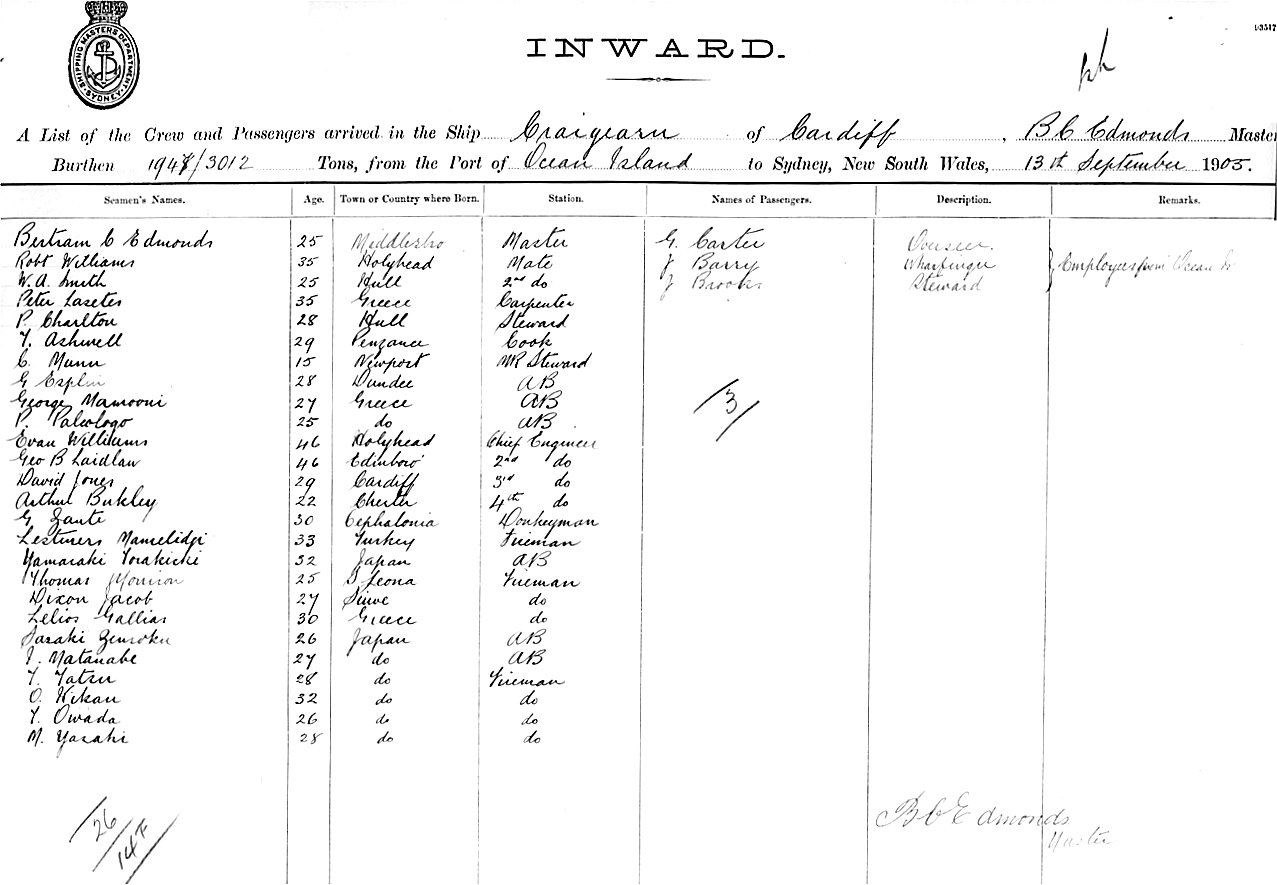 SHIPPING MASTERS DEPARTMENT
SYDNEY
INWARD.
A List of the Crew and Passengers arrived in the Ship Craigearn of Cardiff, B C Edmonds Master
Burthen 1947/3012 Tons, from the Port of Ocean Island to Sydney, New South Wales, 13th September 1905.
Seamen's Names. Age. Town or Country where Born. Station. Names of Passengers. Description. Remarks.
Bertram C Edmonds 25 Middlesbro Master G. Carter Overseer.
Robt Williams 35 Holyhead Mate J Barry Wharfinger Employees from Ocean Is
W. A. Smith 25 Hull 2nd do J Brooks Steward
Peter Lasetes 35 Greece Carpenter
P. Charlton 28 Hull Steward
T. Ashwell 29 Penzance Cook
C. Mann 15 Newport MR Steward
G Esplin 28 Dundee AB
George Mamooni 27 Greece AB
P. Paleologo 25 do AB
Evan Williams 46 Holyhead Chief Engineer
Geo B Laidlaw 46 Edinboro' 2nd do
David Jones 29 Cardiff 3rd do
Arthur Bukley 22 Chester 4th do
G Zante 30 Cephalonia Donkeyman
33 Turkey Fireman
Yamaraki Torakichi 32 Japan AB
Thomas Morrison 25 S Leona Fireman
Dixon Jacob 27 do
Lelios Gallias 30 Greece do
Sasaki Zenroku 26 Japan AB
Watanabe 27 do AB
T. Tatsu 28 do Fireman
O. Kikan 32 do do
T. Owada 26 do do
M. Yasaki 28 do do
3
26
147
B C Edmonds
Master